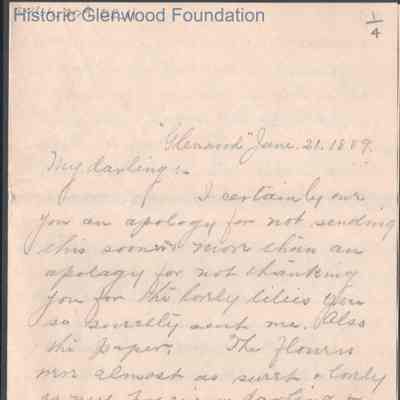 Historic Glenwood Foundation
1/4
"Glenwood" June. 21. 1889.
My darling:-
I certainly owe
you an apology for not sending
this sooner more than an
apology for not thanking
you for the lovely lilies you
so sweetly sent me. Also
the paper. The flowers
were almost as sweet & lovely
as my